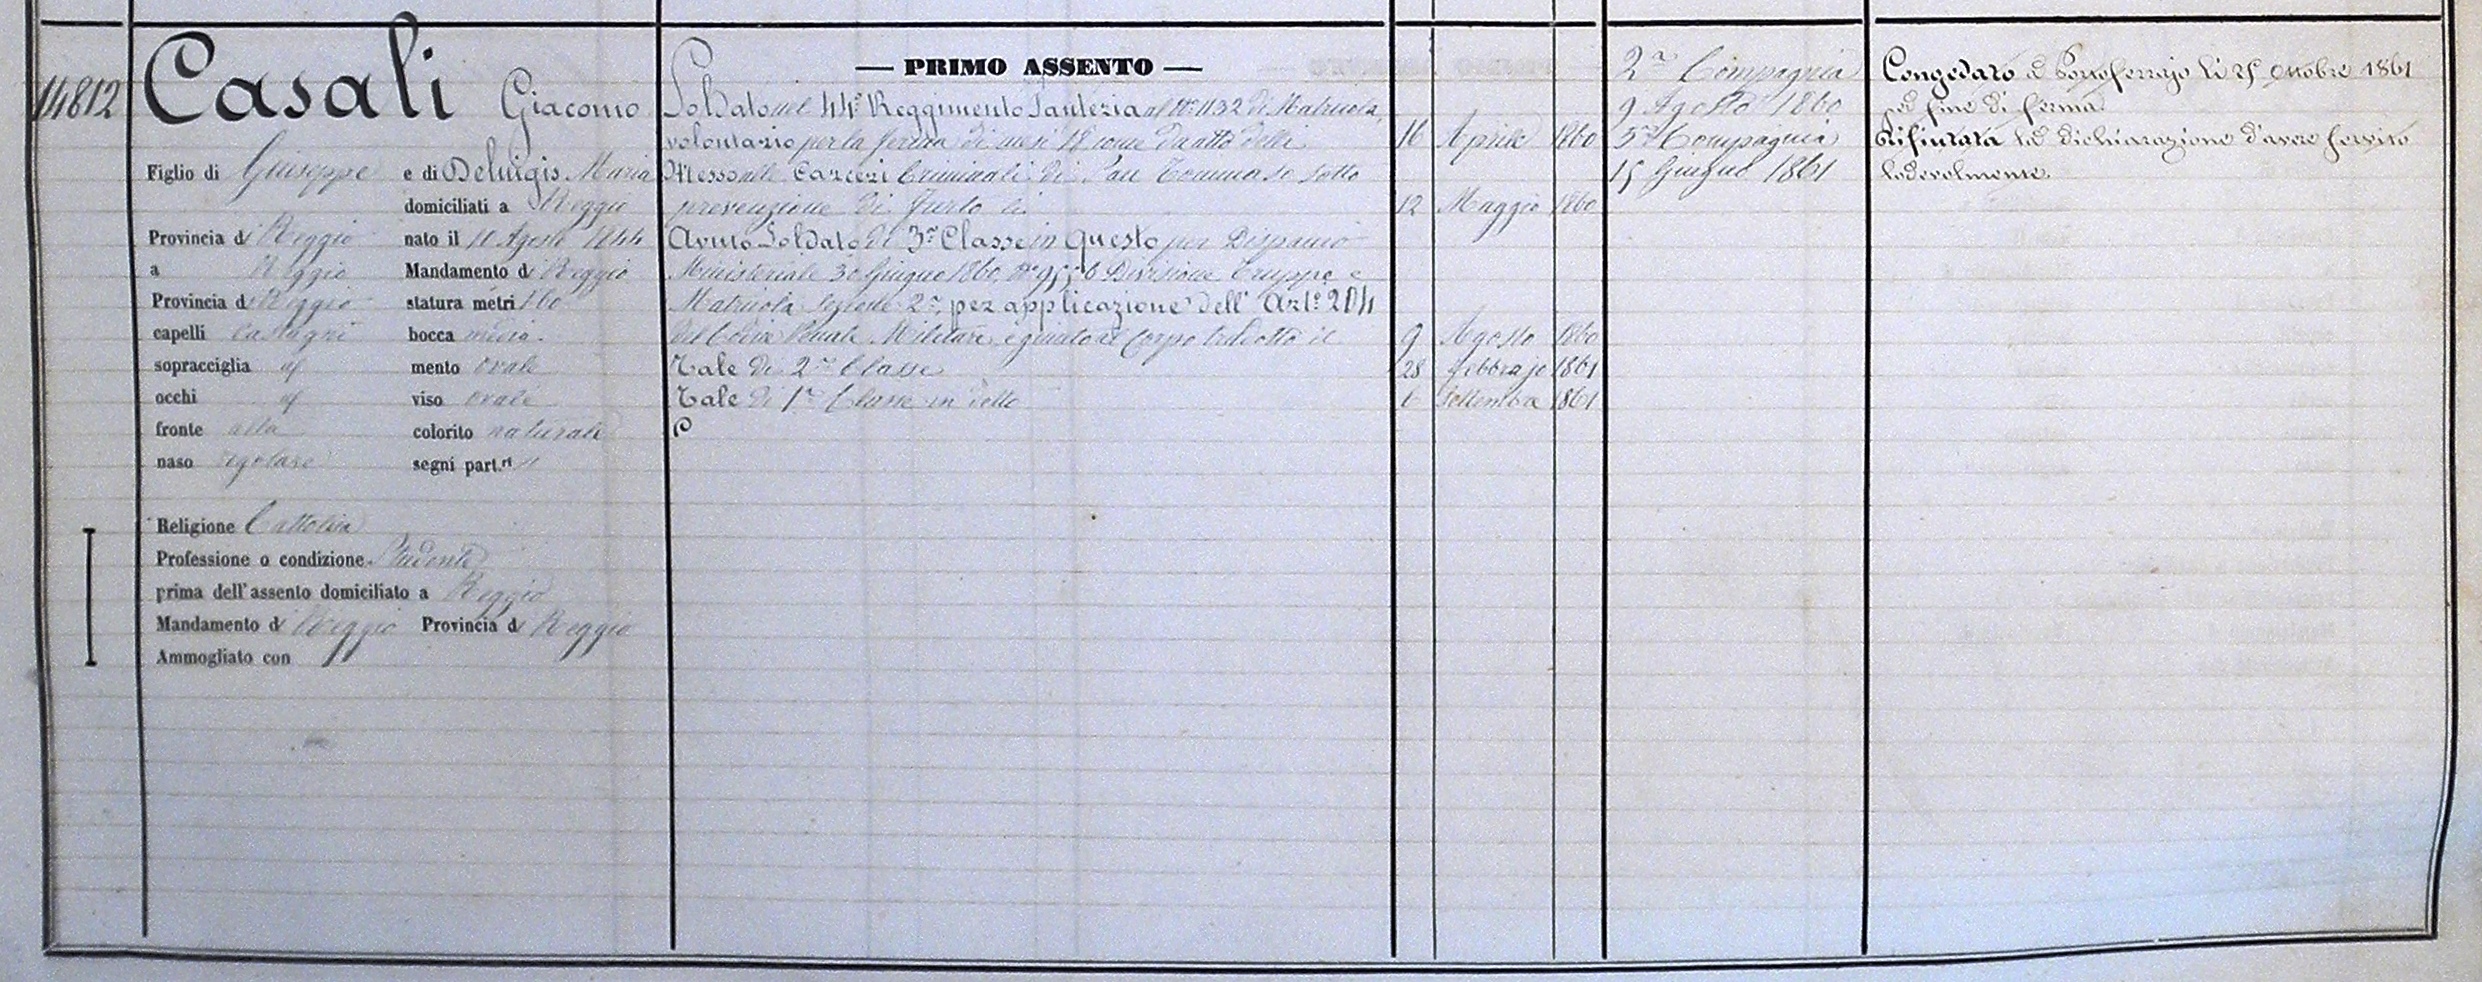 14812
Casali Giacomo
Figlio di Giuseppe e di Deluigis Maria
domiciliati a Reggio
Provincia di Reggio nato il 11 Agosto 1844
a Reggio Mandamento di Reggio
Provincia di Reggio statura metri 1'60
capelli castagni bocca media
sopracciglia id mento ovale
occhi id viso ovale
fronte alta colorito naturale
naso regolare segni part.ri "
Religione Cattolica
Professione o condizione Studente
prima dell'assento domiciliato a Reggio
Mandamento di Reggio Provincia di Reggio
Ammogliato con
— PRIMO ASSENTO —
Soldato nel 44° Reggimento Fanteria al N° 1132 di Matricola,
volontario per la ferma di mesi 18 come da atto delli 16 Aprile 1860
Messo alle Carceri Criminali di San Tommaso sotto
prevenzione di Furto li 12 Maggio 1860
Avuto Soldato di 3a Classe in questo per Dispaccio
Ministeriale 30 Giugno 1860 N° 9556 Divisione Truppe e
Matricola Sezione 2a, per applicazione dell' Art° 204
del Codice Penale Militare, e giunto al Corpo tradotto il 9 Agosto 1860
Tale di 2a Classe 28 Febbrajo 1861
Tale di 1a Classe in detto 6 Settembre 1861
2a Compagnia
9 Agosto 1860
5a Compagnia
15 Giugno 1861
Congedato a Portoferrajo li 25 Ottobre 1861
per fine di ferma
Rifiutata la dichiarazione d'avere servito
lodevolmente.